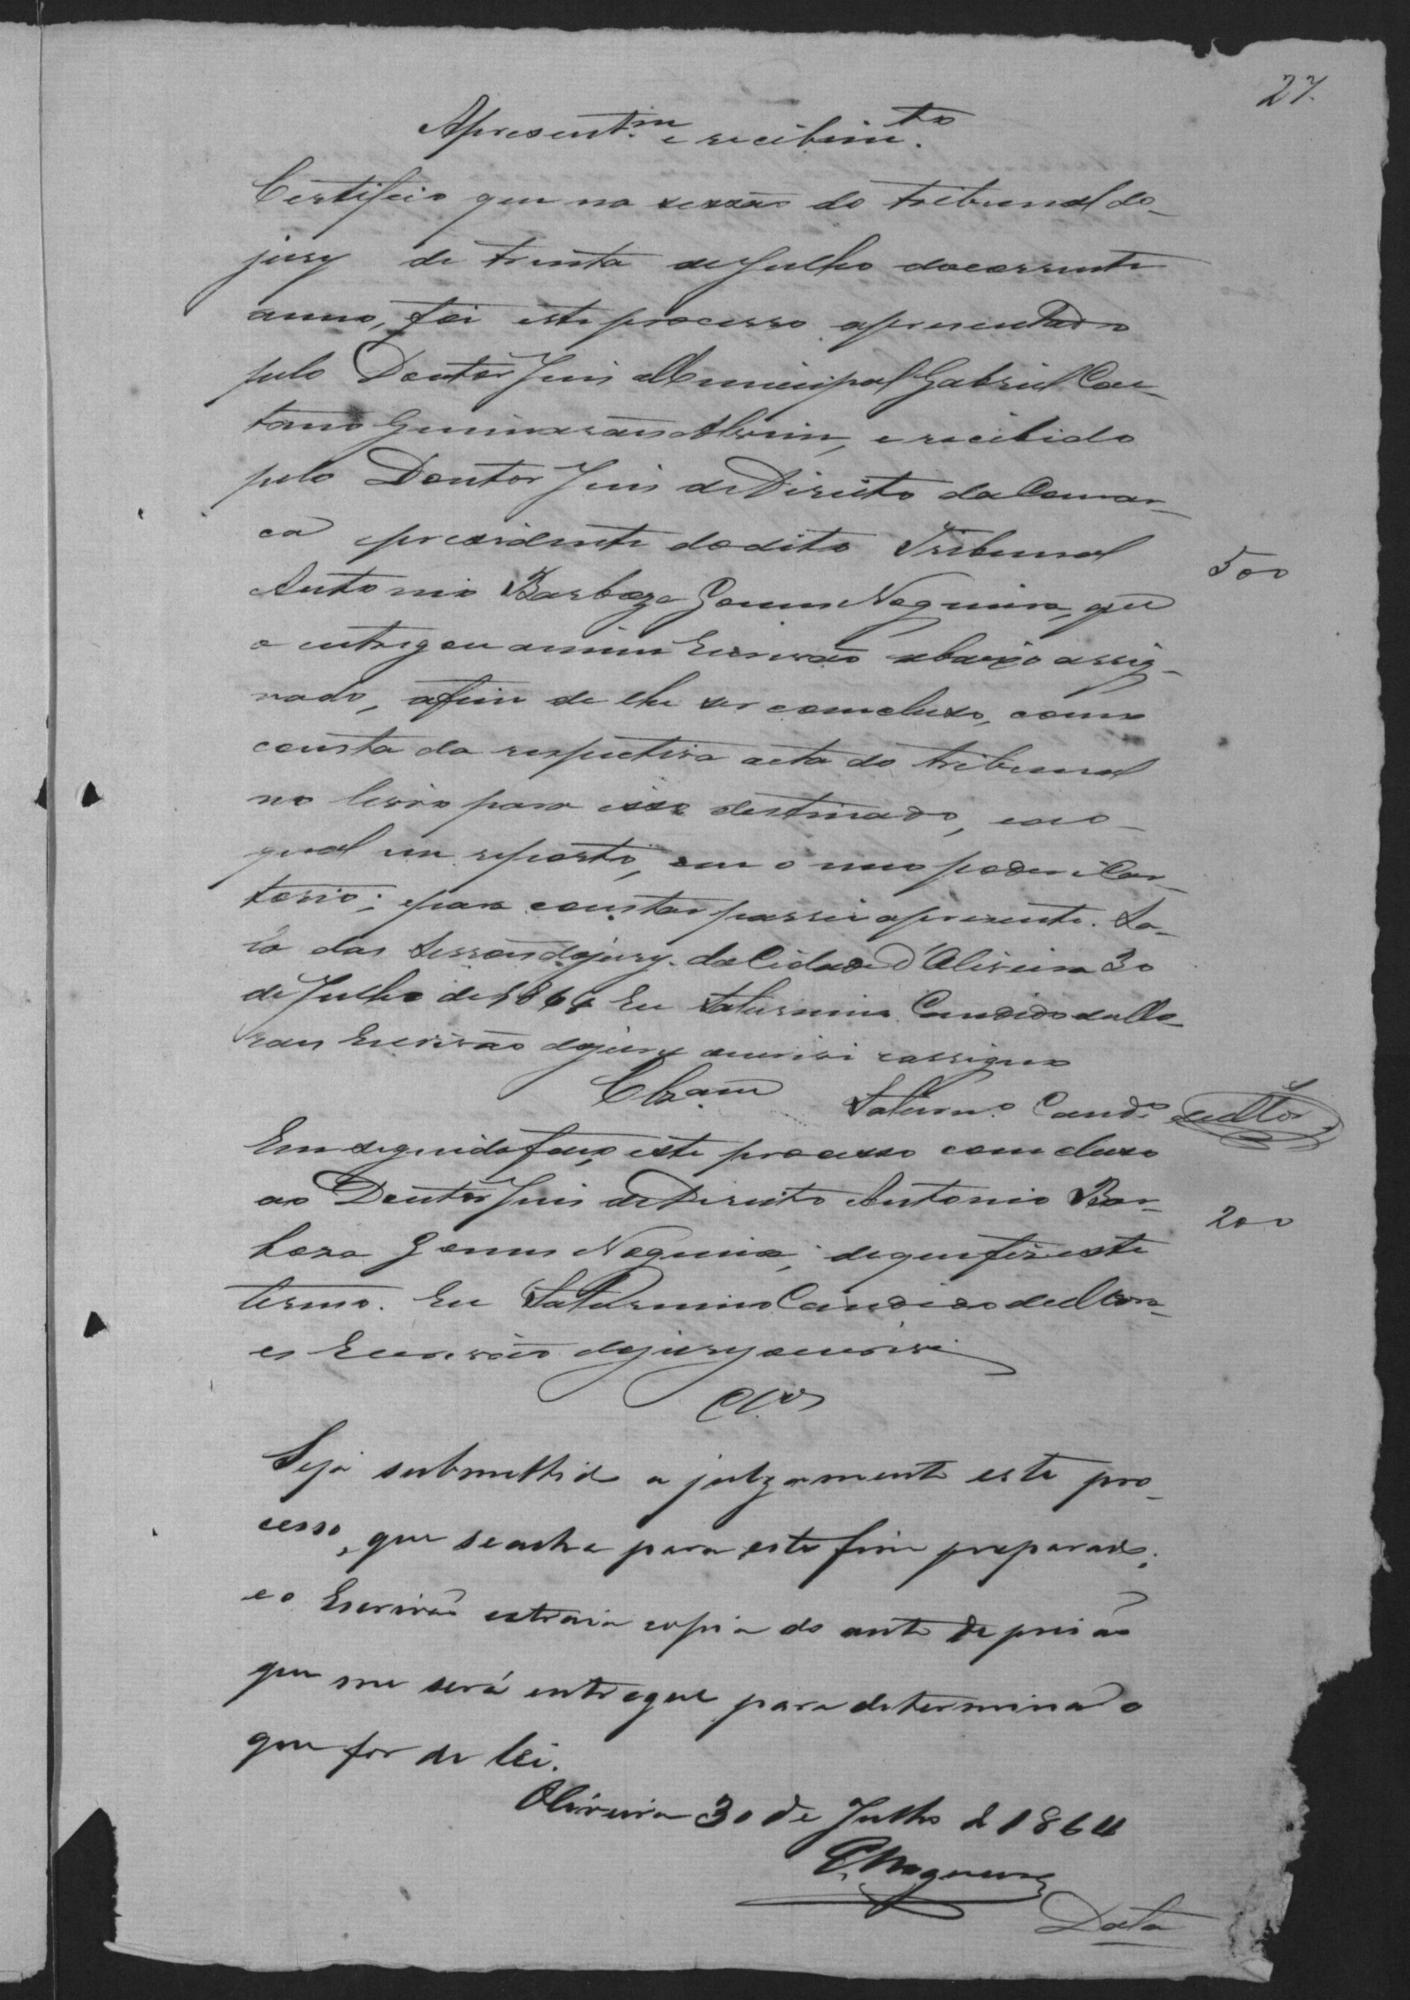 27.
Apresentm. e recebimto.
Certifico que na sessão do tribunal do
jury de trinta de Julho do corrente
anno, foi este processo apresentado
pelo Doutor Juis Municipal Gabriel Cae-
tano Guimarães Alvim, e recebido
pelo Doutor Juis de Direito da Comar-
ca presidente do dito Tribunal
500
Antonio Barboza Gomes Nogueira, que
o entregou a mim Escrivão abaixo assig-
nado, afim de lhe ser concluso, como
consta da respectiva acta do tribunal
no livro para isso destinado, e ao
qual me reporto, em o meo poder e Car-
torio; e para constar passei a presente. Sa-
la das Sessoens do jury da Cidade d'Oliveira 30
de Julho de 1864 Eu Saturnino Candido de Mo-
raes Escrivão do jury escrevi e assigno
Clzam.
Saturno. Cando. de Mors.
Em seguida faço este processo concluso
ao Doutor Juis de Direito Antonio Bar-
200
boza Gomes Nogueira; de que fiz este
termo. Eu Saturnino Candido de Mora-
es Escrivão do jury escrevi
Clos
Seja submettido a julgamento este pro-
cesso, que se acha para este fim preparado;
e o Escrivão extraia copia do auto de prisão
que me será entregue para determinar o
que for de lei.
Oliveira 30 de Julho de 1864
G. Nogueira
Data